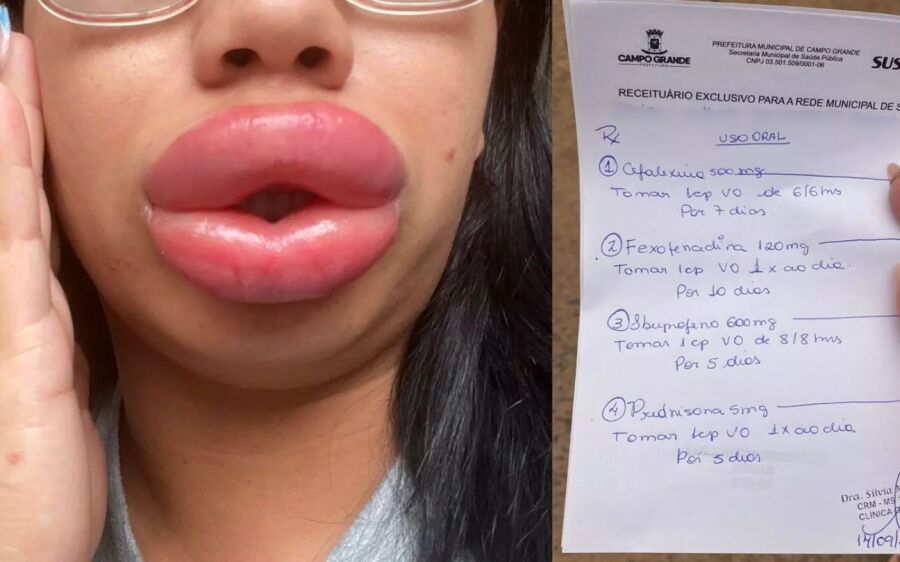 CAMPO GRANDE
PREFEITURA
PREFEITURA MUNICIPAL DE CAMPO GRANDE
Secretaria Municipal de Saúde Pública
CNPJ 03.501.509/0001-06
SUS
RECEITUÁRIO EXCLUSIVO PARA A REDE MUNICIPAL DE S
Rx USO ORAL
1 Cefalexina 500mg
Tomar 1cp VO de 6/6hs
Por 7 dias
2 Fexofenadina 120mg
Tomar 1cp VO 1x ao dia.
Por 10 dias
3 Ibuprofeno 600mg
Tomar 1cp VO de 8/8hs
Por 5 dias
4 Prednisona 5mg
Tomar 1cp VO 1x ao dia
Por 5 dias
Dra. Silvia
CRM - MS
CLÍNICA